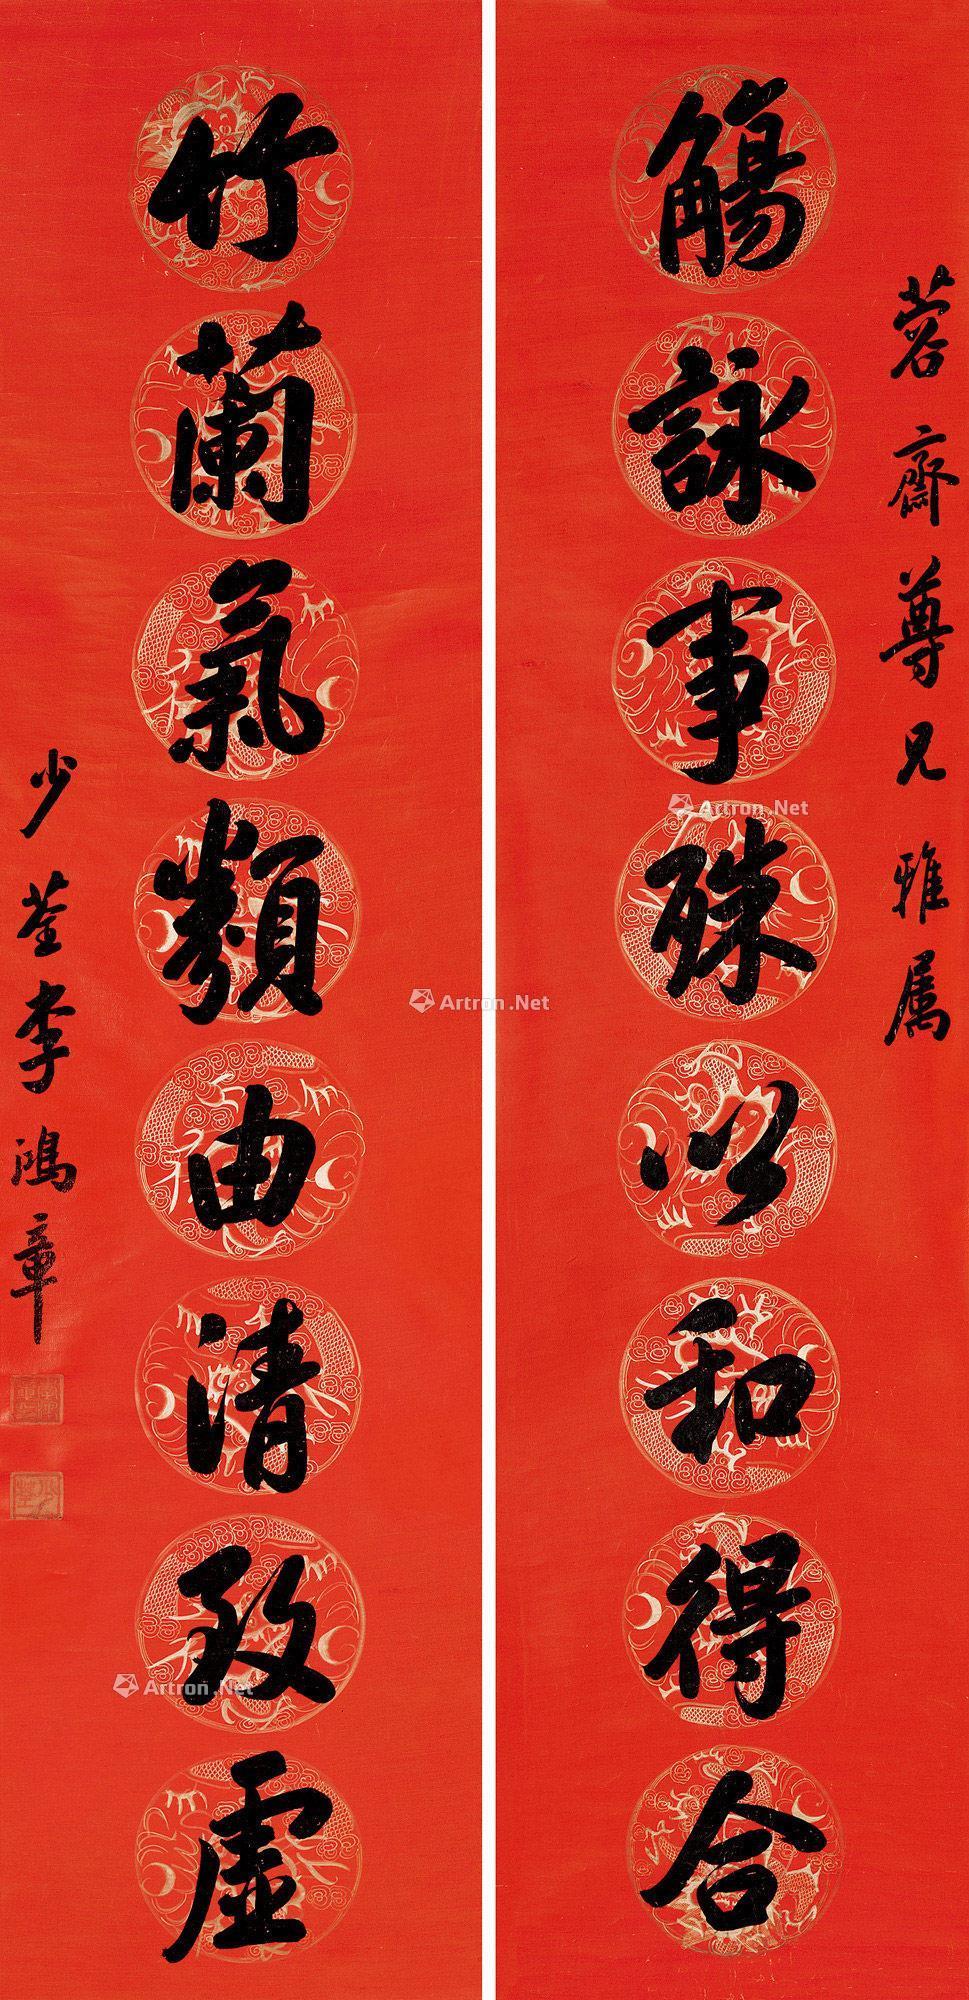 蓉齋尊兄雅属
觴詠事殊以和得合
竹蘭氣類由清致虛
少荃李鴻章
Artron.Net
Artron.Net
Artron.Net